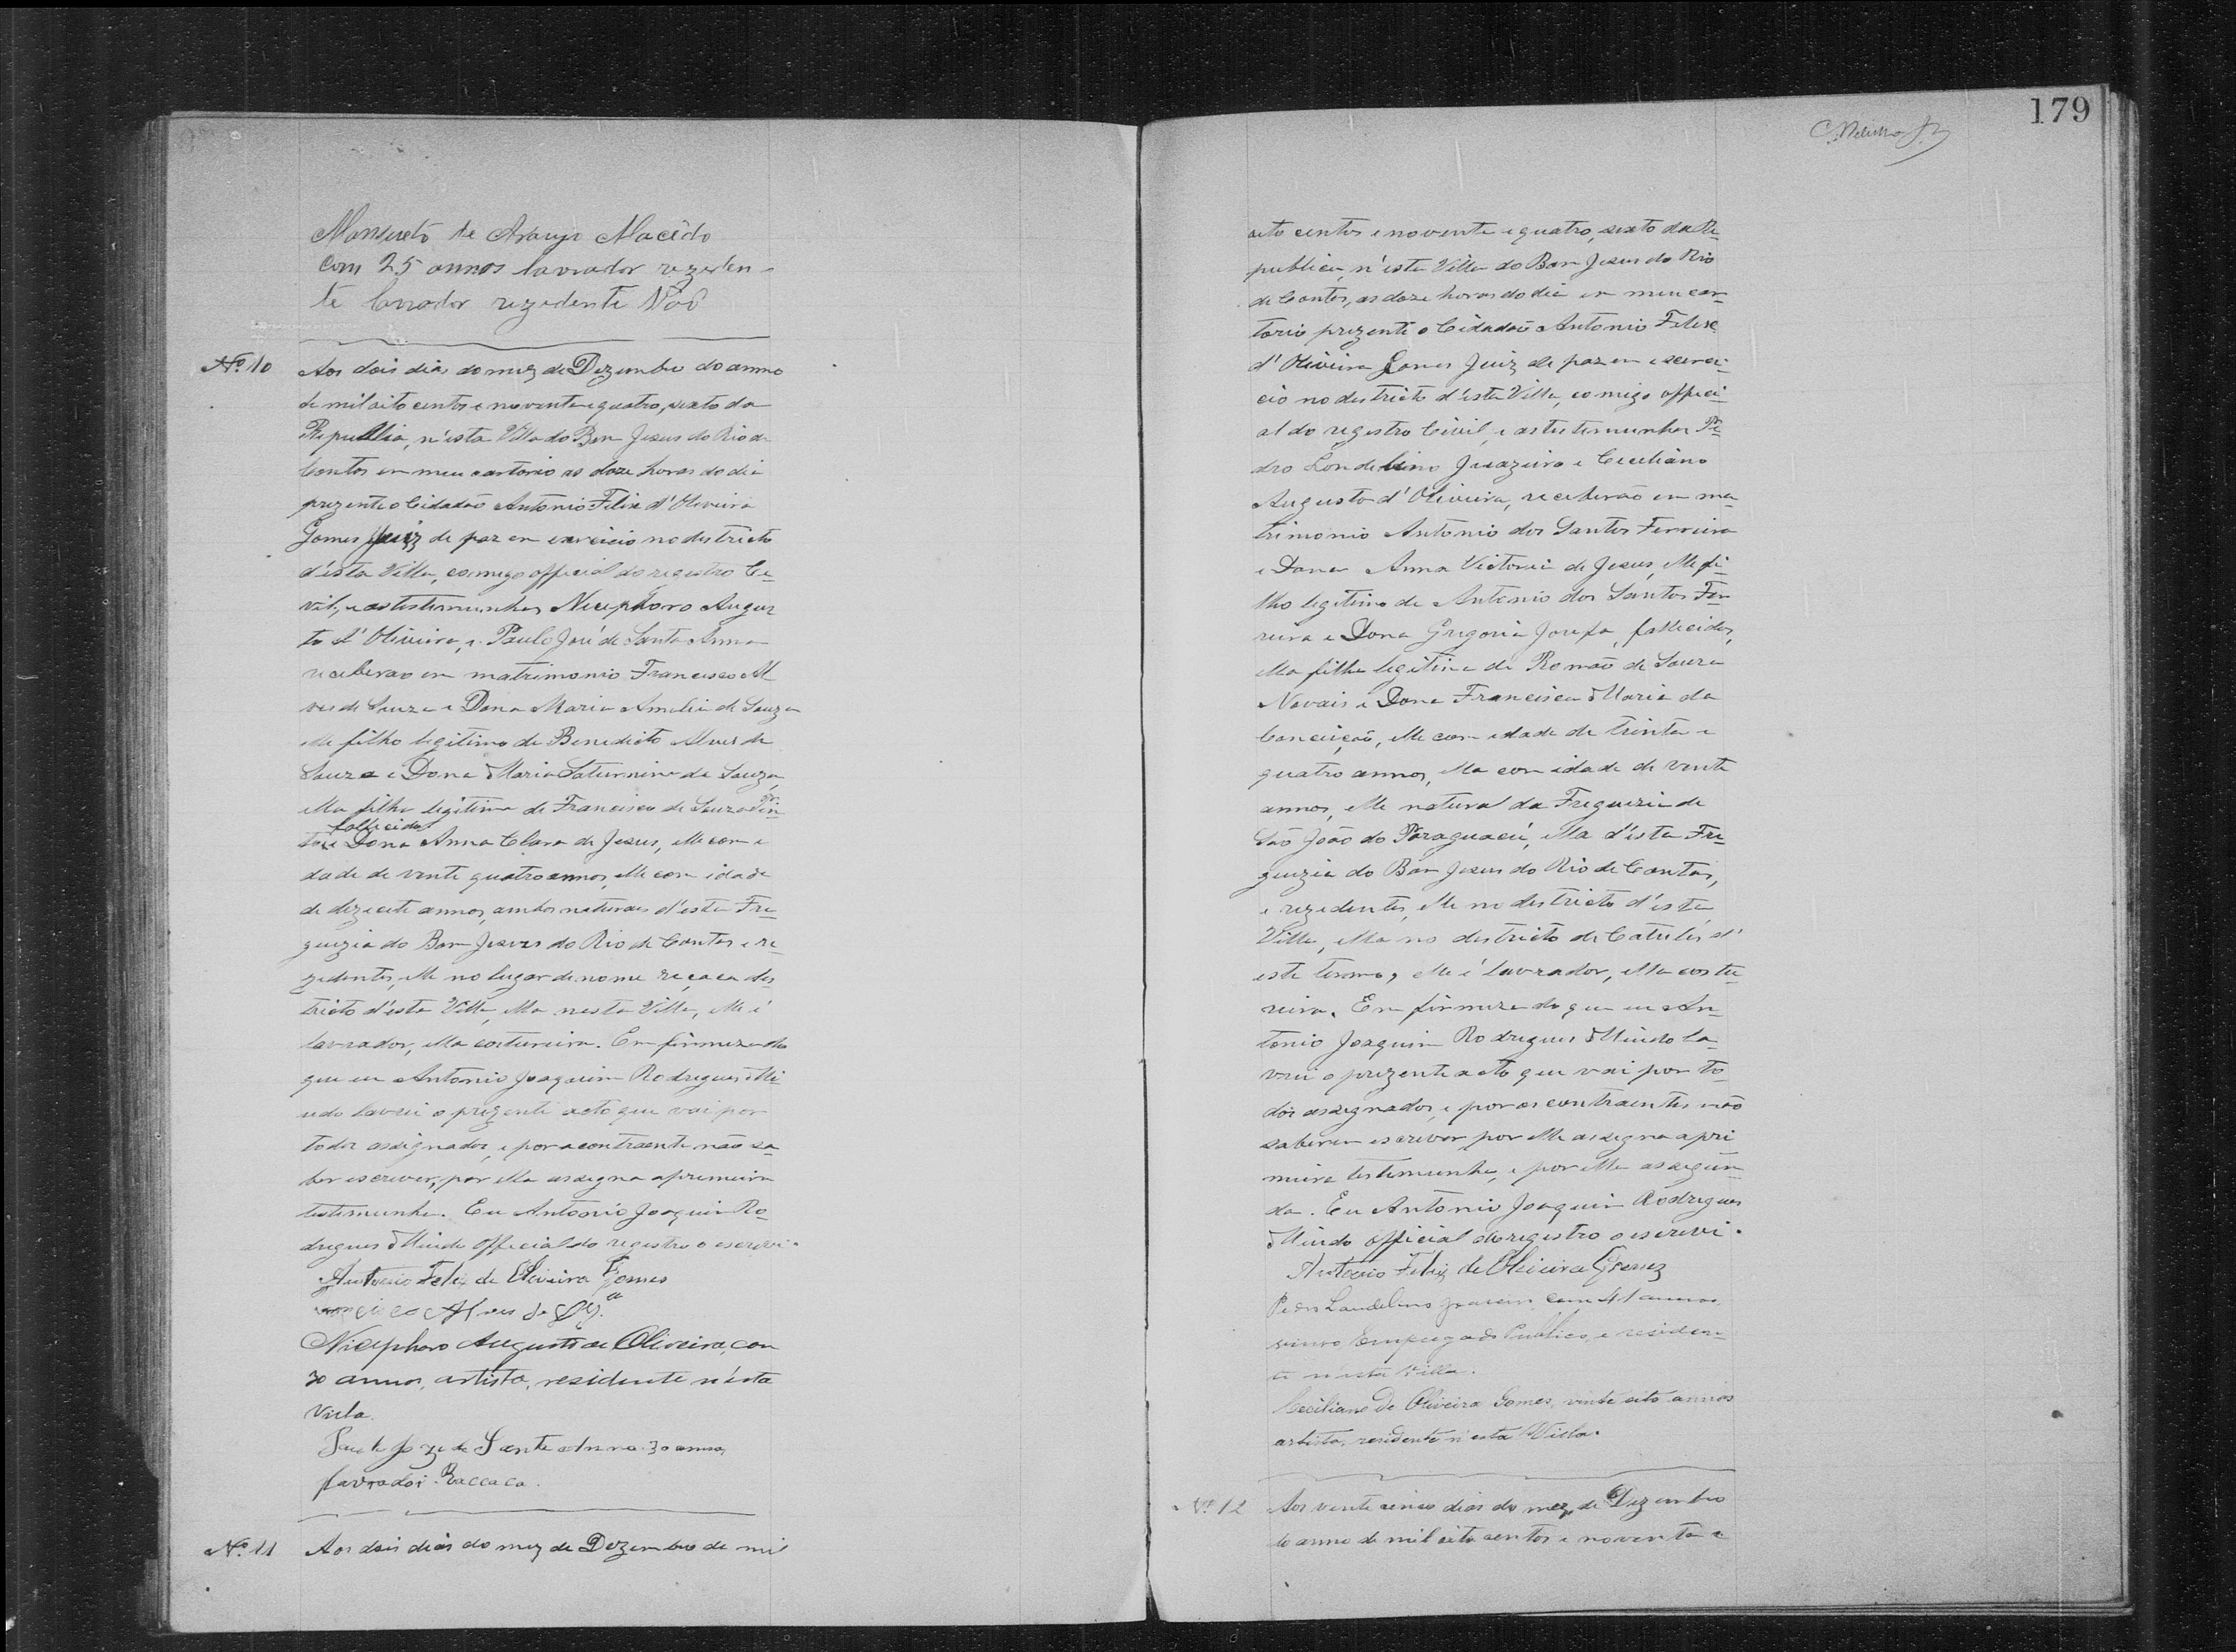 179
Mansueto de Araujo Macêdo
com 25 annos lavrador rezeden-
te lavrador rezedente
Nº 10
Aos dois dias do mez de Dezembro do anno
de mil oito centos e noventa e quatro, sexto da
Republica, n'esta Villa do Bom Jesus do Rio de
Contas em meu cartorio as doze horas do dia
prezente o Cidadão Antonio Felix d'Oliveira
Gomes Juiz de paz em exercicio no destricto
d'esta Villa, comigo official do registro Ce-
vil, e as testemunhas Nicephoro Augus
to d'Oliveira, e Paulo José de Santa Anna
receberão em matrimonio Francisco Al
ves de Souza e Dona Maria Amelia de Souza
elle filho legitimo de Benedicto Alves de
Souza e Dona Maria Saturnina de Souza,
ella filha legitima de Francisco de Souza Pin
fallecido
to e Dona Anna Clara de Jesus, elle com e
dade de vente quatro annos, elle com idade
de dezecete annos, ambos naturaes d'esta Fre-
guezia do Bom Jesus do Rio de Contas e re
zedentes, elle no lugar de nome recaca des
tricto d'esta Villa, ella nesta Villa, elle é
lavrador, ella costureira. Em firmeza do
que eu Antonio Joaquim Rodrigues Mi
udo lavrei o prezente acto que vai por
todos assignados, e por a contraente não sa-
ber escrever, por ella assegna a premeira
testemunha. Eu Antonio Joaquim Ro-
drigues Miudo official do registro o escrevi.
Antonio Felix de Oliveira Gomes
Alves de
Nicephoro Augusto de Oliveira, com
30 annos, artista, residente n'esta
Villa.
Paulo Joze de Santa Anna 30 annos,
lavrador. Raccaca.
Nº 11
Aos dois dias do mez de Dezembro de mil
oito centos e noventa e quatro, sexto da Re-
publica, n'esta Villa do Bom Jesus do Rio
de Contas, as doze horas do dia em meu car-
torio prezente o Cidadão Antonio Felix
d'Oliveira Gomes Juiz de paz em exerci-
cio no destricto d'esta Villa, comigo offici-
al do registro Civil, e as testemunhas Pe-
dro Londelino Juazeiro e Ceceliano
Augusto d'Oliveira, receberão em ma
trimonio Antonio dos Santos Ferreira
e Dona Anna Victoria de Jesus, elle fi-
lho legitimo de Antonio dos Santos Fer-
reira e Dona Grigoria Josefa, fallecidos,
ella filha legitima de Romão de Souza
Novais e Dona Francisca Maria da
Conceição, elle com edade de trinta e
quatro annos, ella com idade de vente
annos, elle natural da Freguezia de
São João do Paraguacú, ella d'esta Fre-
guezia do Bom Jesus do Rio de Contas,
e rezedentes, elle no destricto d'esta
Villa, ella no destricto de Catules d'
este termo, elle é lavrador, ella costu-
reira. Em firmeza do que eu An-
tonio Joaquim Rodrigues Miudo la-
vrei o prezente acto que vai por to-
dos assegnados, e por os contraentes não
saberem escrever por elle assegna a pri
meira testemunha, e por ella a segun-
da. Eu Antonio Joaquim Rodrigues
Miudo official do registro o escrevi.
Antonio Felix de Oliveira Gomes
Pedro Landelino com 41 annos
Empregado Publico, e residen-
te n'esta Villa.
Ceciliano de Oliveira Gomes, vinte oito annos
artista, residente n'esta Villa.
Nº 12
Aos vente cinco dias do mez de Dezembro
do anno de mil oito centos e noventa e